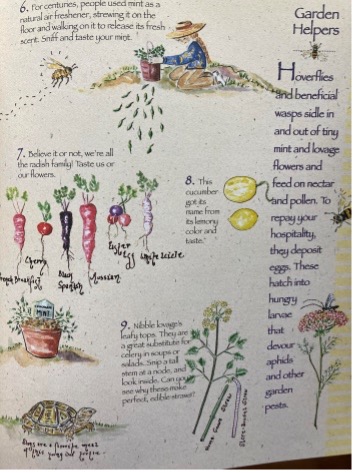 6. For centuries, people used mint as a
natural air freshener, strewing it on the
floor and walking on it to release its fresh
scent. Sniff and taste your mint.
7. Believe it or not, we're all
the radish family! Taste us or
our flowers.
French Breakfast
Cherry
Black
Spanish
Russian
Easter
Egg
White Icicle
8. This
cucumber
got its
name from
its lemony
color and
taste.
MINT
9. Nibble lovage's
leafy tops. They are
a great substitute for
celery in soups or
salads. Snip a tall
stem at a node, and
look inside. Can you
see why these make
perfect, edible straws?
Garden
Helpers
Hoverflies
and beneficial
wasps sidle in
and out of tiny
mint and lovage
flowers and
feed on nectar
and pollen. To
repay your
hospitality,
they deposit
eggs. These
hatch into
hungry
larvae
that
devour
aphids
and other
garden
pests.